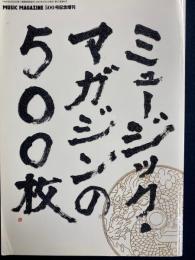 MUSIC MAGAZINE 500号記念増刊
ミュージック・
マガジンの
500枚